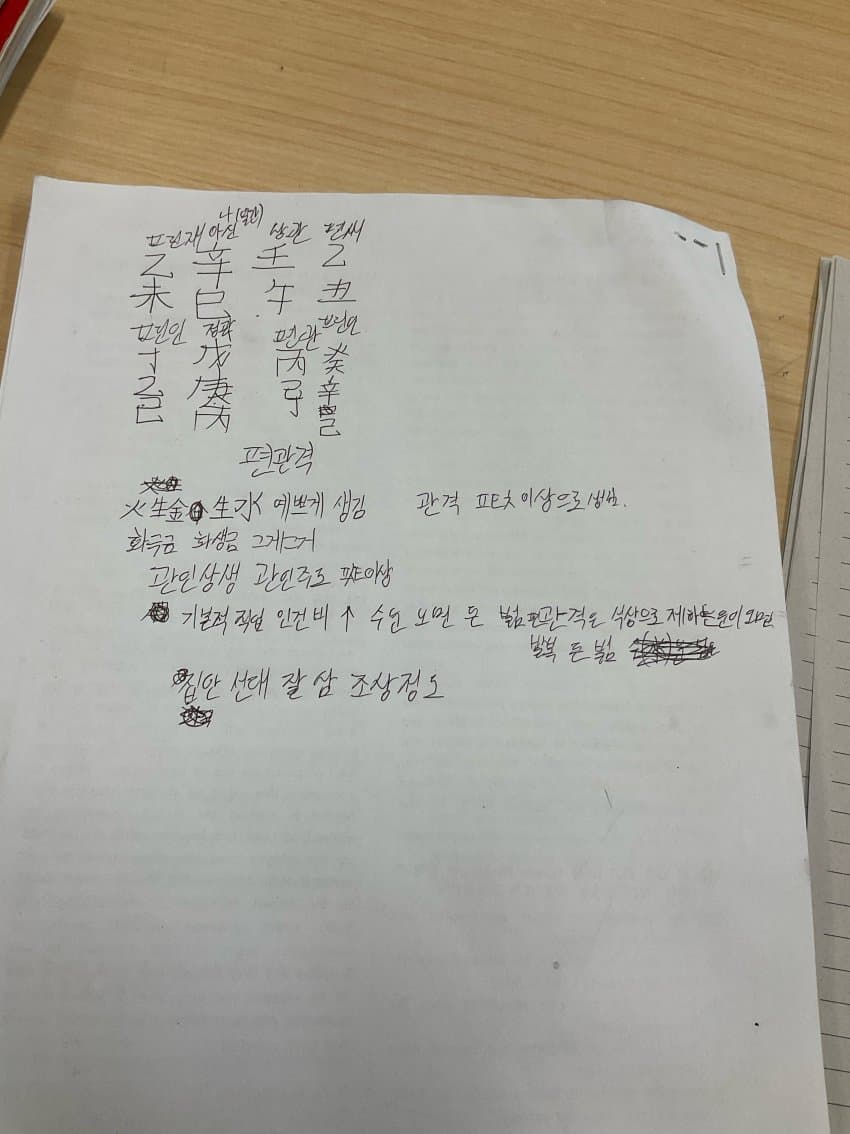 나(일간)
편재 아신 상관 편재
乙 辛 壬 乙
未 巳 午 丑
편인 정관 편관 편인
丁 戊 丙 癸
乙 庚 丁 辛
己 丙 己
편관격
火生金 生水 예쁘게 생김 관격 평타 이상으로 생김.
화극금 화생금 그게그거
관인상생 관인주도 평타이상
기본적 직업 인건비 ↑ 수운 오면 돈 범 편관격은 식상으로 제하는 운이 오면
발복 돈 범
집안 선대 잘 삼 조상정도